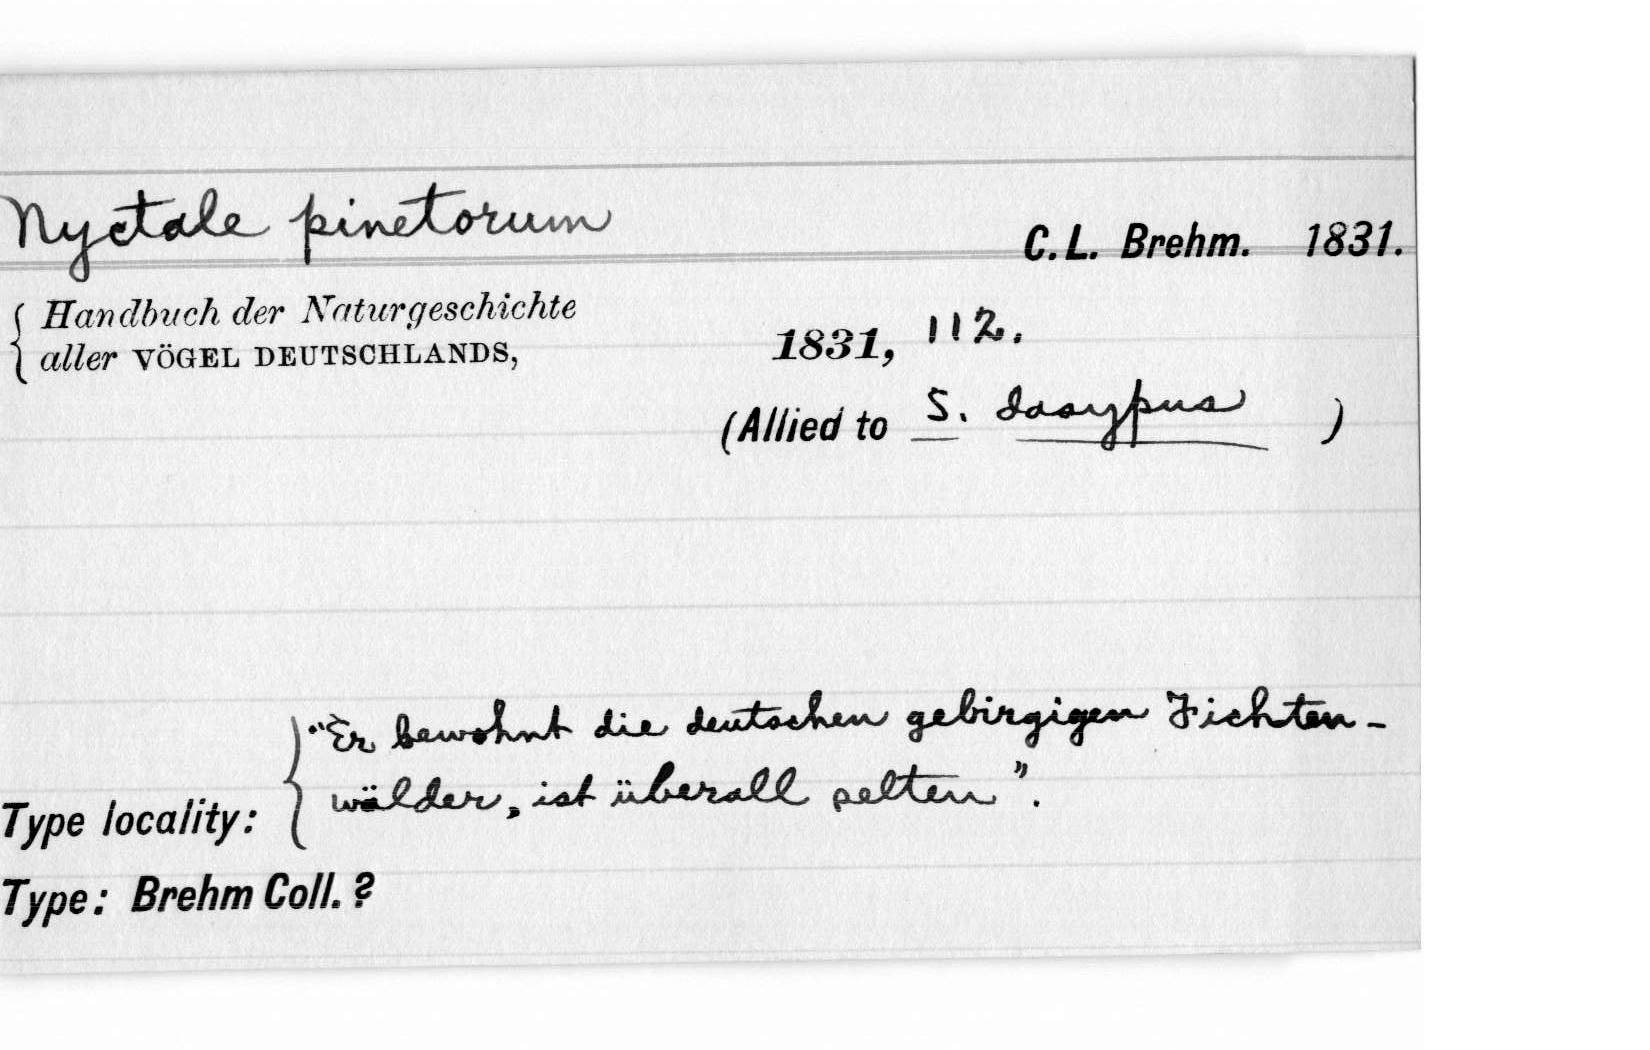 Nyctale pinetorum
C. L. Brehm. 1831.
Handbuch der Naturgeschichte
aller VÖGEL DEUTSCHLANDS,
1831, 112.
(Allied to S. dasypus )
"Er bewohnt die deutschen gebirgigen Fichten-
wälder, ist überall selten".
Type locality:
Type: Brehm Coll. ?